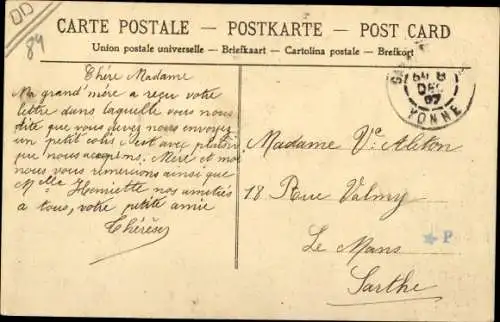 89
CARTE POSTALE — POSTKARTE — POST CARD
Union postale universelle — Briefkaart — Cartolina postale — Brefkort
Chère Madame
Ma grand'mère a reçu votre
lettre dans laquelle vous nous
dite que vous devez nous envoyer
un petit colis c'est avec plaisir
que nous acceptons. Mère et moi
nous vous remercions ainsi que
Melle Henriette nos amitiés
à tous, votre petite amie
Thérèse
8
DEC
07
YONNE
Madame Ve
18 Rue Valmy
Le Mans
Sarthe
P